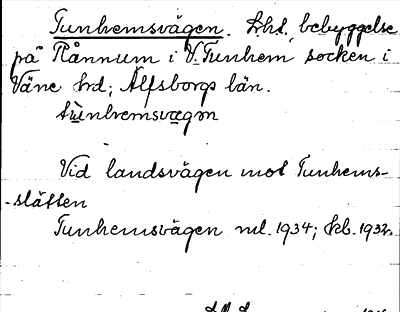 Tunhemsvägen. Lht, bebyggelse
på Rånnum i V. Tunhem socken i
Väne hd; Älfsborgs län.
tùnhemsvægən
Vid landsvägen mot Tunhems-
-slätten
Tunhemsvägen ml. 1934; kb. 1932.